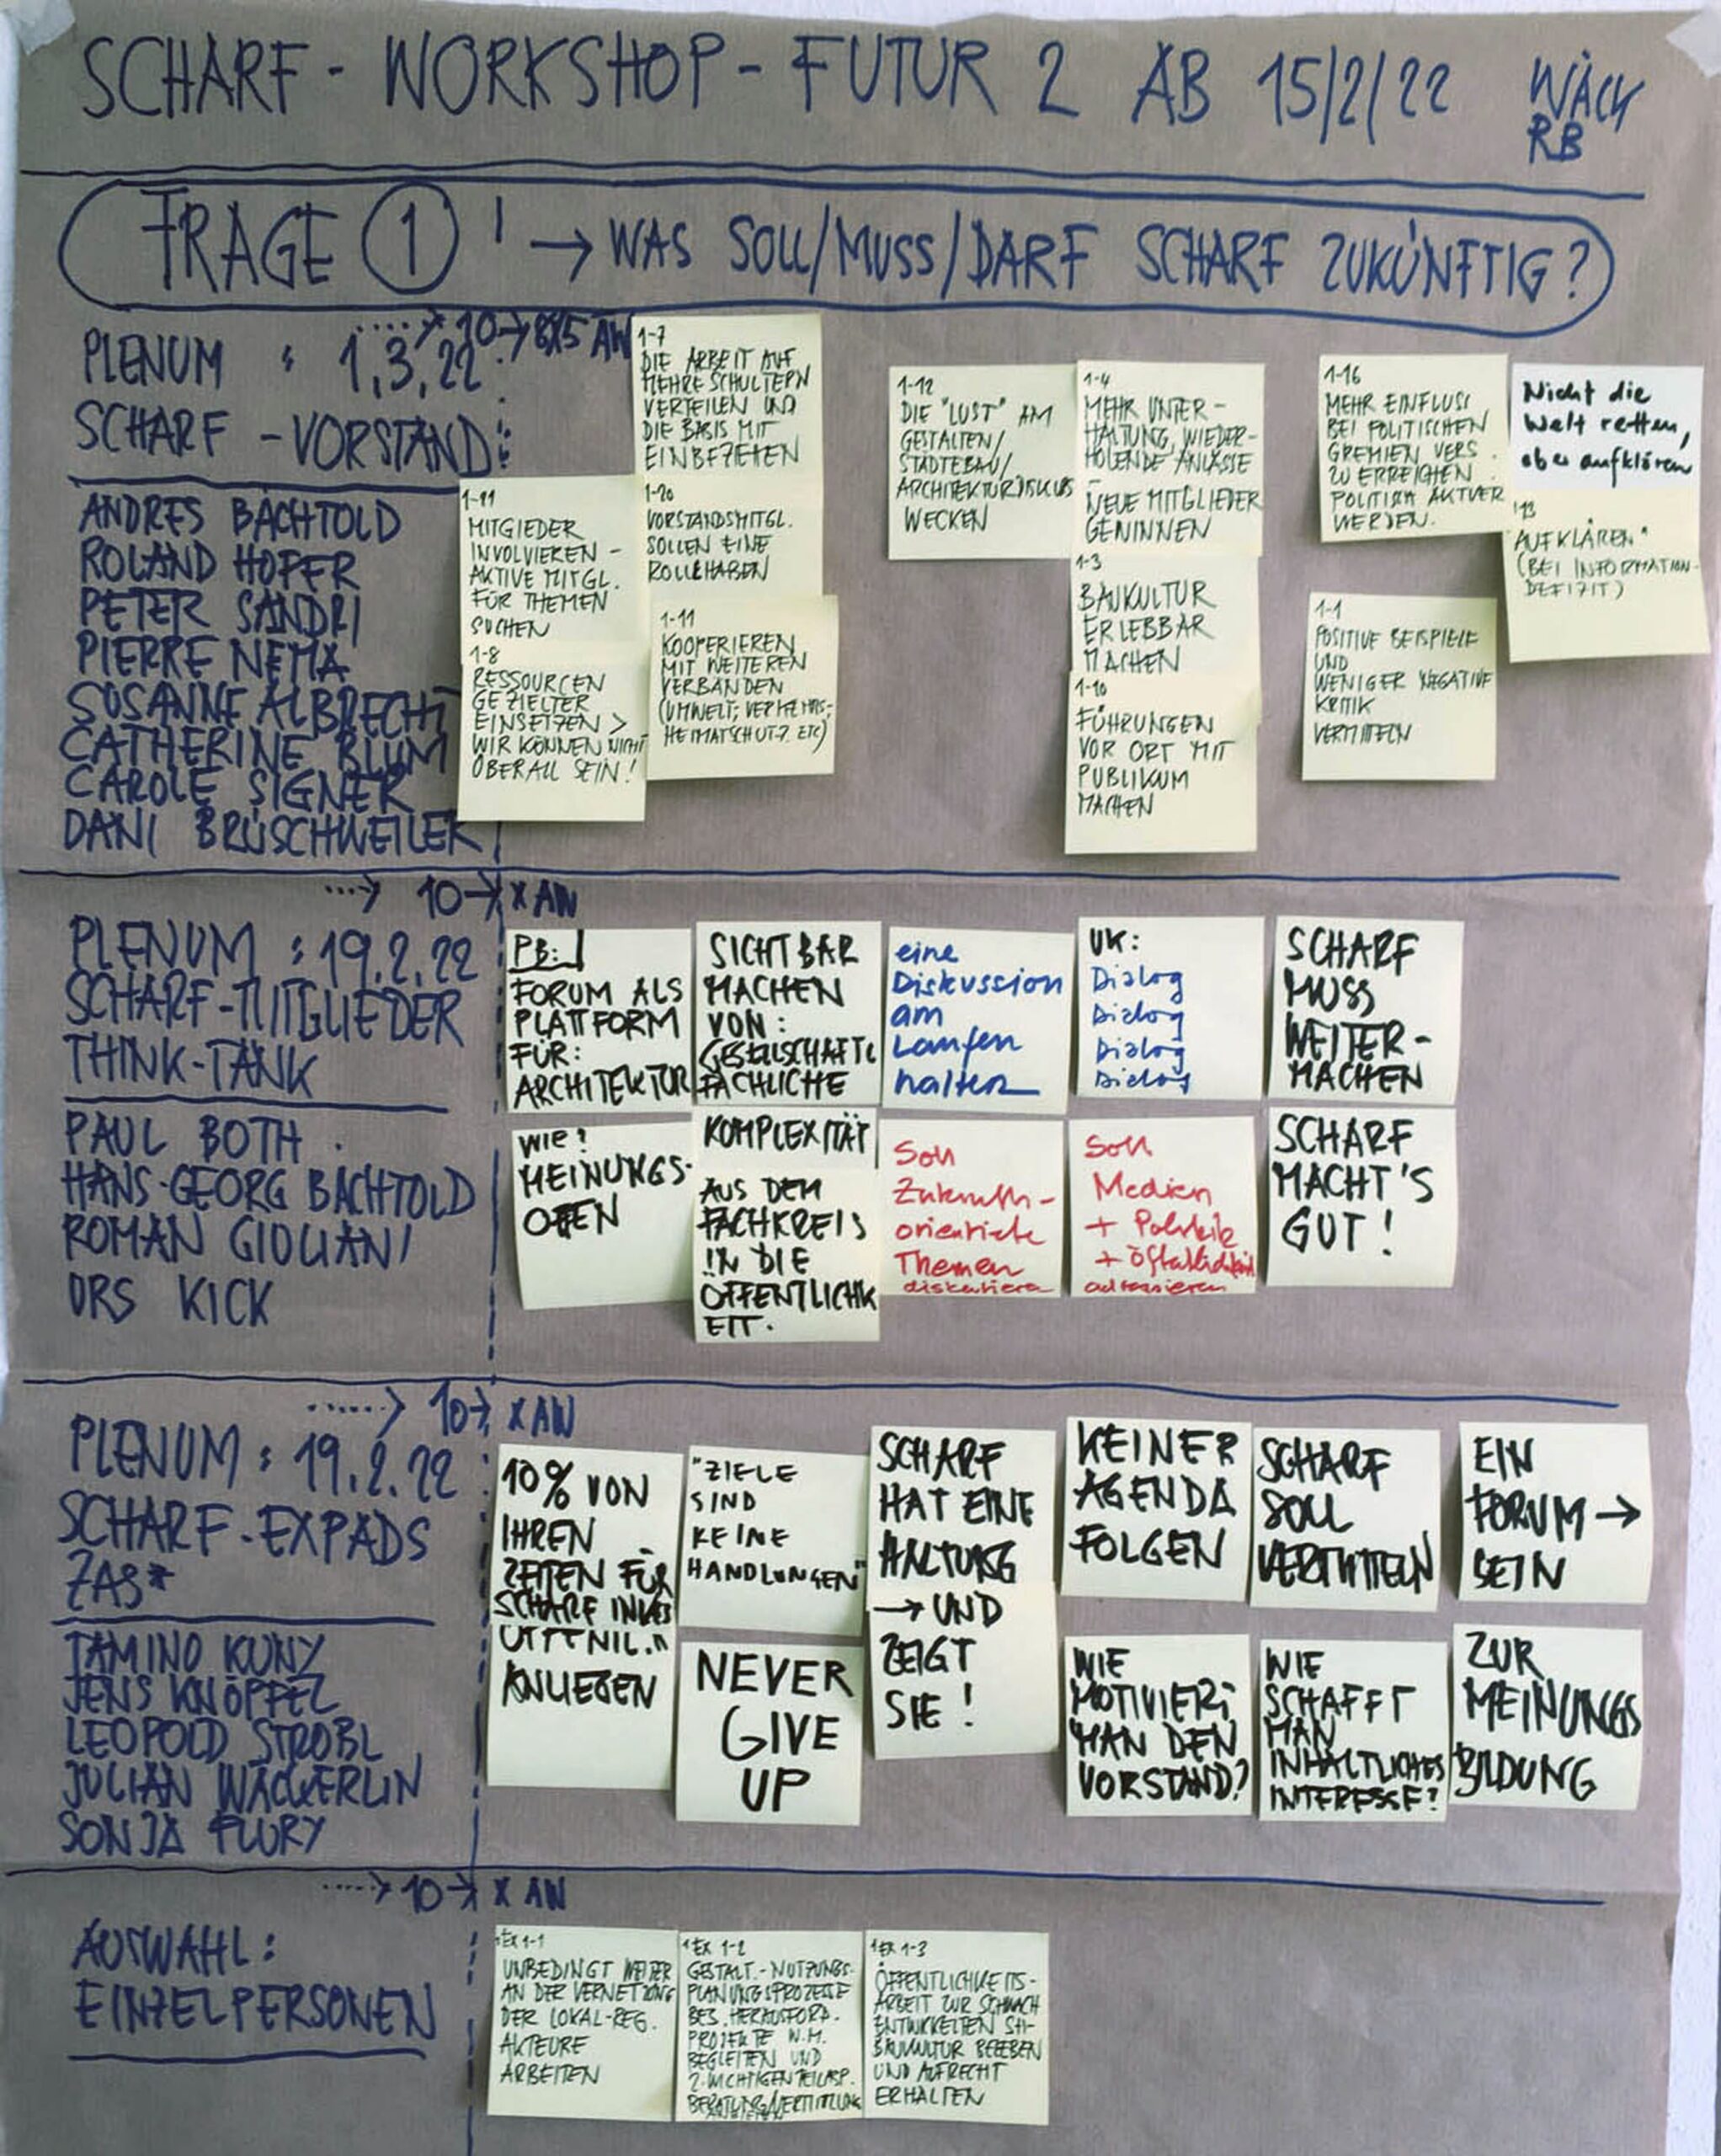 SCHARF - WORKSHOP - FUTUR 2 AB 15/2/22
WÄCK
RB
FRAGE 1 ! → WAS SOLL/MUSS/DARF SCHARF ZUKÜNFTIG?
PLENUM : 1.3.22
SCHARF - VORSTAND:
ANDRES BÄCHTOLD
ROLAND HOFER
PETER SANDRI
PIERRE NEMA
SUSANNE ALBRECHT
CATHERINE BLUM
CAROLE SIGNER
DANI BRÜSCHWEILER
1-11
MITGIEDER
INVOLVIEREN -
AKTIVE MITGL.
FÜR THEMEN
SUCHEN
1-8
RESSOURCEN
GEZIELTER
EINSETZEN >
WIR KÖNNEN NICHT
ÜBERALL SEIN!
1-7
DIE ARBEIT AUF
MEHRE SCHULTERN
VERTEILEN UND
DIE BASIS MIT
EINBEZIEHEN
1-20
VORSTANDSMITGL.
SOLLEN EINE
ROLLE HABEN
1-11
KOOPERIEREN
MIT WEITEREN
VERBÄNDEN
(UMWELT; VERKEHRS-;
HEIMATSCHUTZ ETC)
1-12
DIE "LUST" AM
GESTALTEN/
STÄDTEBAU/
ARCHITEKTURDISKURS
WECKEN
1-4
MEHR UNTER-
HALTUNG, WIEDER-
HOLENDE ANLÄSSE
-
NEUE MITGLIEDER
GEWINNEN
1-3
BAUKULTUR
ERLEBBAR
MACHEN
1-10
FÜHRUNGEN
VOR ORT MIT
PUBLIKUM
MACHEN
1-16
MEHR EINFLUSS
BEI POLITISCHEN
GREMIEN VERS.
ZU ERREICHEN.
POLITISCH AKTIVER
WERDEN.
Nicht die
Welt retten,
aber aufklären
AUFKLÄREN"
(BEI INFORMATION-
DEFIZIT)
1-1
POSITIVE BEISPIELE
UND
WENIGER NEGATIVE
KRITIK
VERMITTELN
10 → X AW
PLENUM : 19.2.22
SCHARF-MITGLIEDER
THINK-TANK
PAUL BOTH
HANS-GEORG BÄCHTOLD
ROMAN GIULIANI
URS KICK
PB:
FORUM ALS
PLATTFORM
FÜR:
ARCHITEKTUR
WIE?
MEINUNGS-
OFFEN
SICHTBAR
MACHEN
VON:
GESELLSCHAFTL
FACHLICHE
KOMPLEXITÄT
AUS DEM
FACHKREIS
IN DIE
ÖFFENTLICHK
EIT.
eine
Diskussion
am
Laufen
halten
Soll
Zukunfts-
orientierte
Themen
diskutieren
UK:
Dialog
Dialog
Dialog
Dialog
Soll
Medien
+ Politik
+ Öffentlichkeit
adressieren
SCHARF
MUSS
WEITER-
MACHEN
SCHARF
MACHT'S
GUT!
10 → X AW
PLENUM : 19.2.22
SCHARF-EXPADS
ZAS*
TAMINO KUNY
JENS KNÖPFEL
LEOPOLD STROBL
JULIAN WÄCKERLIN
SONJA FLURY
10% VON
IHREN
ZEITEN FÜR
SCHARF
ANLIEGEN
"ZIELE
SIND
KEINE
HANDLUNGEN"
NEVER
GIVE
UP
SCHARF
HAT EINE
HALTUNG
→ UND
ZEIGT
SIE!
KEINER
AGENDA
FOLGEN
WIE
MOTIVIERT
MAN DEN
VORSTAND?
SCHARF
SOLL
VERMITTELN
WIE
SCHAFFT
MAN
INHALTLICHES
INTERESSE?
EIN
FORUM →
SEIN
ZUR
MEINUNGS
BILDUNG
10 → X AW
AUSWAHL:
EINZELPERSONEN
EX 1-1
UNBEDINGT WEITER
AN DER VERNETZUNG
DER LOKAL-REG.
AKTEURE
ARBEITEN
EX 1-2
GESTALT.- NUTZUNGS-
PLANUNGSPROZESSE
BES. HERAUSFORD.
PROJEKTE W.M.
BEGLEITEN UND
Z. WICHTIGEN TEILASP.
BERATUNG/VERMITTLUNG
ANBIETEN
EX 1-3
ÖFFENTLICHKEITS-
ARBEIT ZUR SCHWACH
ENTWICKELTEN SH-
BAUKULTUR BELEBEN
UND AUFRECHT
ERHALTEN